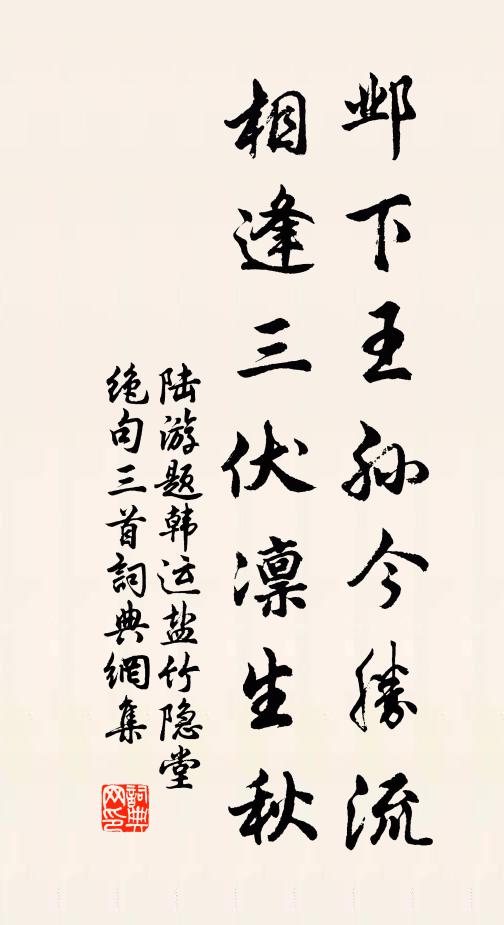 邺下王孙今勝流
相逢三伏凛生秋
陆游题韩运盐竹隐堂
绝句三首詞典網集
詞典网印